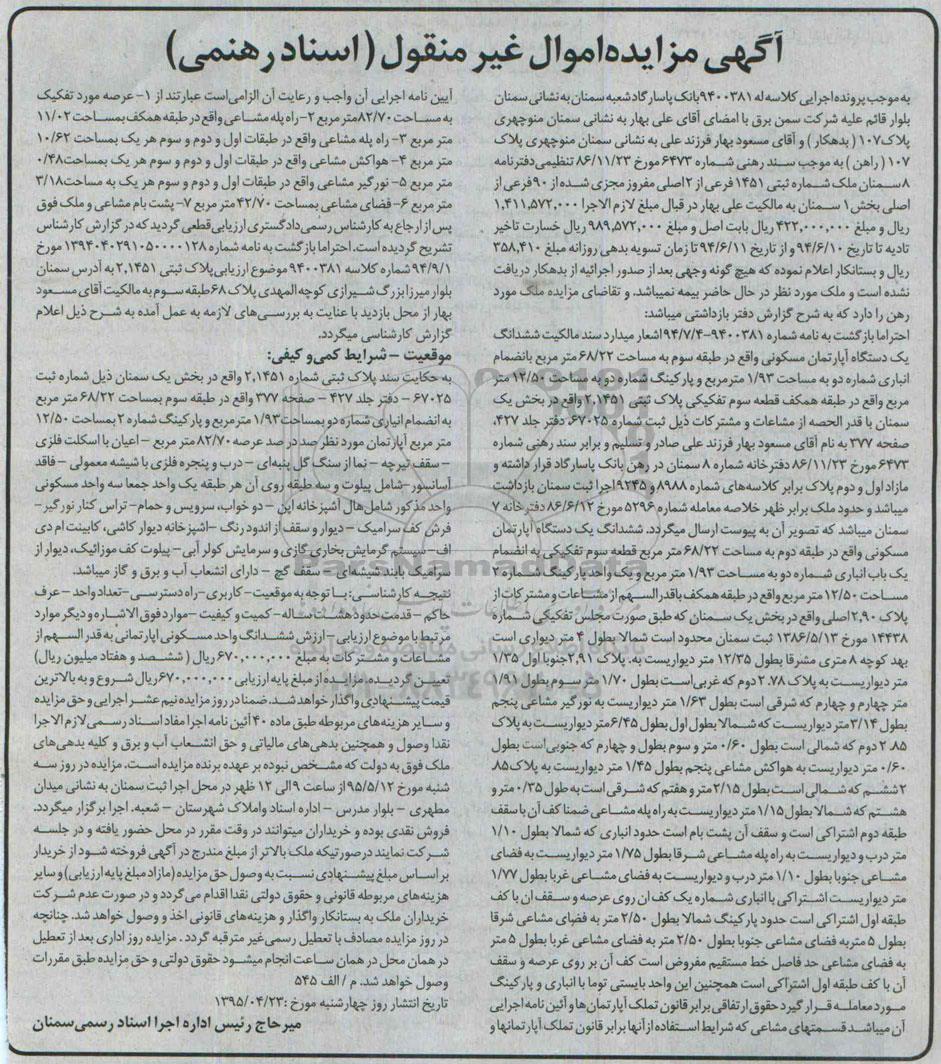 آگهی مزایده اموال غیر منقول (اسناد رهنی)
به موجب پرونده اجرایی کلاسه له ۹۴۰۰۳۸۱ بانک پاسارگاد شعبه سمنان به نشانی سمنان
بلوار قائم علیه شرکت سمن برق با امضای آقای علی بهار به نشانی سمنان منوچهری
پلاک ۱۰۷ (بدهکار) و آقای مسعود بهار فرزند علی به نشانی سمنان منوچهری پلاک
۱۰۷ (راهن) به موجب سند رهنی شماره ۶۴۷۳ مورخ ۸۶/۱۱/۲۳ تنظیمی دفترنامه
۸ سمنان ملک شماره ثبتی ۱۴۵۱ فرعی از ۲ اصلی مفروز مجزی شده از ۹۰ فرعی از
اصلی بخش ۱ سمنان به مالکیت علی بهار در قبال مبلغ لازم الاجرا ۱,۴۱۱,۵۷۲,۰۰۰
ریال و مبلغ ۴۲۲,۰۰۰,۰۰۰ ریال بابت اصل و مبلغ ۹۸۹,۵۷۲,۰۰۰ ریال خسارت تاخیر
تادیه تا تاریخ ۹۴/۶/۱۰ و از تاریخ ۹۴/۶/۱۱ تا زمان تسویه بدهی روزانه مبلغ ۳۵۸,۴۱۰
ریال و بستانکار اعلام نموده که هیچ گونه وجهی بعد از صدور اجرائیه از بدهکار دریافت
نشده است و ملک مورد نظر در حال حاضر بیمه نمیباشد. و تقاضای مزایده ملک مورد
رهن را دارد که به شرح گزارش دفتر بازداشتی میباشد:
احتراما بازگشت به نامه شماره ۹۴۰۰۳۸۱–۹۴/۷/۴ اشعار میدارد سند مالکیت ششدانگ
یک دستگاه آپارتمان مسکونی واقع در طبقه سوم به مساحت ۶۸/۲۲ متر مربع بانضمام
انباری شماره دو به مساحت ۱/۹۳ متر مربع و پارکینگ شماره دو به مساحت ۱۲/۵۰ متر
مربع واقع در طبقه همکف قطعه سوم تفکیکی پلاک ثبتی ۲,۱۴۵۱ واقع در بخش یک
سمنان با قدر الحصه از مشاعات و مشترکات ذیل ثبت شماره ۶۷۰۲۵، دفتر جلد ۴۲۷،
صفحه ۳۷۷ به نام آقای مسعود بهار فرزند علی صادر و تسلیم و برابر سند رهنی شماره
۶۴۷۳ مورخ ۸۶/۱۱/۲۳ دفترخانه شماره ۸ سمنان در رهن بانک پاسارگاد قرار داشته و
مازاد اول و دوم پلاک برابر کلاسه‌های شماره ۸۹۸۸ و ۹۲۴۵ اجرا ثبت سمنان بازداشت
میباشد و حدود ملک برابر ظهر خلاصه معامله شماره ۵۲۹۶ مورخ ۸۶/۶/۱۲ دفترخانه ۷
سمنان میباشد که تصویر آن به پیوست ارسال میگردد. ششدانگ یک دستگاه آپارتمان
مسکونی واقع در طبقه دوم به مساحت ۶۸/۲۲ متر مربع قطعه سوم تفکیکی به انضمام
یک باب انباری شماره دو به مساحت ۱/۹۳ متر مربع و یک واحد پارکینگ شماره ۲
مساحت ۱۲/۵۰ متر مربع واقع در طبقه همکف باقدرالسهم از مشاعات و مشترکات از
پلاک ۲,۹۰ اصلی واقع در بخش یک سمنان که طبق صورت مجلس تفکیکی شماره
۱۴۴۳۸ مورخ ۱۳۸۶/۵/۱۳ ثبت سمنان محدود است شمالا بطول ۴ متر دیواری است
بهد کوچه ۸ متری مشرقا بطول ۱۲/۳۵ متر دیواریست به. پلاک ۲,۹۱ جنوبا اول ۱/۳۵
متر دیواریست به پلاک ۲,۷۸ دوم که غربی است بطول ۱/۷۰ متر سوم بطول ۱/۹۱
متر چهارم و چهارم که شرقی است بطول ۱/۶۳ متر دیواریست به نورگیر مشاعی پنجم
بطول ۳/۱۴ متر دیواریست که شمالا بطول اول بطول ۶/۴۵ متر دیواریست به پلاک
۸۵، ۲ دوم که شمالی است بطول ۰/۶۰ متر و سوم بطول و چهارم که جنوبی است بطول
۰/۶۰ متر دیواریست به هواکش مشاعی پنجم بطول ۱/۴۵ متر دیواریست به پلاک ۸۵،
۲ ششم که شمالی است بطول ۲/۱۵ متر و هفتم که شرقی است به طول ۰/۳۵ متر و
هشتم که شمالا بطول ۱/۱۵ متر دیواریست به راه پله مشاعی ضمنا کف آن با سقف
طبقه دوم اشتراکی است و سقف آن پشت بام است حدود انباری که شمالا بطول ۱/۱۰
متر درب و دیواریست به راه پله مشاعی شرقا بطول ۱/۷۵ متر دیواریست به فضای
مشاعی جنوبا بطول ۱/۱۰ متر درب و دیواریست به فضای مشاعی غربا بطول ۱/۷۷
متر دیواریست اشتراکی با انباری شماره یک کف ان روی عرصه و سقف ان با کف
طبقه اول اشتراکی است حدود پارکینگ شمالا بطول ۲/۵۰ متر به فضای مشاعی شرقا
بطول ۵ متر به فضای مشاعی جنوبا بطول ۲/۵۰ متر به فضای مشاعی غربا بطول ۵ متر
به فضای مشاعی حد فاصل خط مستقیم مفروض است کف آن بر روی عرصه و سقف
آن با کف طبقه اول اشتراکی است همچنین این واحد بایستی توما با انباری و پارکینگ
مورد معامله قرار گیرد حقوق ارتفاقی برابر قانون تملک آپارتمان‌ها و آئین نامه اجرایی
آن میباشد قسمتهای مشاعی که شرایط استفاده از آنها برابر قانون تملک آپارتمانها و
آیین نامه اجرایی آن واجب و رعایت آن الزامی است عبارتند از ۱– عرصه مورد تفکیک
به مساحت ۸۲/۷۰ متر مربع ۲– راه پله مشاعی واقع در طبقه همکف بمساحت ۱۱/۰۲
متر مربع ۳– راه پله مشاعی واقع در طبقات اول و دوم و سوم هر یک بمساحت ۱۰/۶۲
متر مربع ۴– هواکش مشاعی واقع در طبقات اول و دوم و سوم هر یک بمساحت ۰/۴۸
متر مربع ۵– نورگیر مشاعی واقع در طبقات اول و دوم و سوم هر یک به مساحت ۳/۱۸
متر مربع ۶– فضای مشاعی بمساحت ۴۲/۷۰ متر مربع ۷– پشت بام مشاعی و ملک فوق
پس از ارجاع به کارشناس رسمی دادگستری ارزیابی قطعی گردید که در گزارش کارشناس
تشریح گردیده است. احتراما بازگشت به نامه شماره ۱۳۹۴۰۴۰۲۹۱۰۵۰۰۰۰۱۲۸ مورخ
۹۴/۹/۱ شماره کلاسه ۹۴۰۰۳۸۱ موضوع ارزیابی پلاک ثبتی ۲,۱۴۵۱ به آدرس سمنان
بلوار میرزا بزرگ شیرازی کوچه المهدی پلاک ۶۸ طبقه سوم به مالکیت آقای مسعود
بهار از محل بازدید با عنایت به بررسی‌های لازمه به عمل آمده به شرح ذیل اعلام
گزارش کارشناسی میگردد.
موقعیت – شرایط کمی و کیفی:
به حکایت سند پلاک ثبتی شماره ۲,۱۴۵۱ واقع در بخش یک سمنان ذیل شماره ثبت
۶۷۰۲۵ – دفتر جلد ۴۲۷ – صفحه ۳۷۷ واقع در طبقه سوم بمساحت ۶۸/۲۲ متر مربع
به انضمام انباری شماره دو بمساحت ۱/۹۳ متر مربع و پارکینگ شماره ۲ بمساحت ۱۲/۵۰
متر مربع آپارتمان مورد نظر صد در صد عرصه ۸۲/۷۰ متر مربع – اعیان با اسکلت فلزی
– سقف تیرچه – نما از سنگ گل پنبه‌ای – درب و پنجره فلزی با شیشه معمولی – فاقد
آسانسور – شامل پیلوت و سه طبقه روی آن هر طبقه یک واحد جمعا سه واحد مسکونی
واحد مذکور شامل هال آشپزخانه اپن – دو خواب، سرویس و حمام – تراس کنار نورگیر –
فرش کف سرامیک – دیوار و سقف از اندود رنگ – اشپزخانه دیوار کاشی، کابینت ام دی
اف – سیستم گرمایش بخاری گازی و سرمایش کولر آبی – پیلوت کف موزائیک، دیوار از
سرامیک با بند شیشه‌ای – سقف گچ – دارای انشعاب آب و برق و گاز میباشد.
نتیجه کارشناسی: با توجه به موقعیت – کاربری – راه دسترسی – تعداد واحد – عرف
حاکم – قدمت حدود هشت ساله – کمیت و کیفیت – موارد فوق الاشاره و دیگر موارد
مرتبط با موضوع ارزیابی – ارزش ششدانگ واحد مسکونی اپارتمانی به قدر السهم از
مشاعات و مشترکات به مبلغ ۶۷۰,۰۰۰,۰۰۰ ریال (ششصد و هفتاد میلیون ریال)
تعیین گردیده. مزایده از مبلغ پایه ارزیابی ۶۷۰,۰۰۰,۰۰۰ ریال شروع و به بالاترین
قیمت پیشنهادی واگذار خواهد شد. ضمنا در روز مزایده نیم عشر اجرایی و حق مزایده
و سایر هزینه‌های مربوطه طبق ماده ۴۰ آئین نامه اجرا مفاد اسناد رسمی لازم الاجرا
نقدا وصول و همچنین بدهی‌های مالیاتی و حق انشعاب آب و برق و کلیه بدهی‌های
ملک فوق به دولت که مشخص نبوده بر عهده برنده مزایده است. مزایده در روز سه
شنبه مورخ ۹۵/۵/۱۲ از ساعت ۹ الی ۱۲ ظهر در محل اجرا ثبت سمنان به نشانی میدان
مطهری – بلوار مدرس – اداره اسناد و املاک شهرستان – شعبه. اجرا برگزار میگردد.
فروش نقدی بوده و خریداران میتوانند در وقت مقرر در محل حضور یافته و در جلسه
شرکت نمایند در صورتیکه ملک بالاتر از مبلغ مندرج در آگهی فروخته شود از خریدار
بر اساس مبلغ پیشنهادی نسبت به وصول حق مزایده (مازاد مبلغ پایه ارزیابی) و سایر
هزینه‌های مربوطه قانونی و حقوق دولتی نقدا اقدام می گردد و در صورت عدم شرکت
خریداران ملک به بستانکار واگذار و هزینه‌های قانونی اخذ و وصول خواهد شد. چنانچه
در روز مزایده مصادف با تعطیل رسمی غیر مترقبه گردد. مزایده روز اداری بعد از تعطیل
در همان محل در همان ساعت انجام میشود حقوق دولتی و حق مزایده طبق مقررات
وصول خواهد شد. م / الف ۵۴۵
تاریخ انتشار روز چهارشنبه مورخ: ۱۳۹۵/۰۴/۲۳
میرحاج رئیس اداره اجرا اسناد رسمی سمنان
ParsNamadData